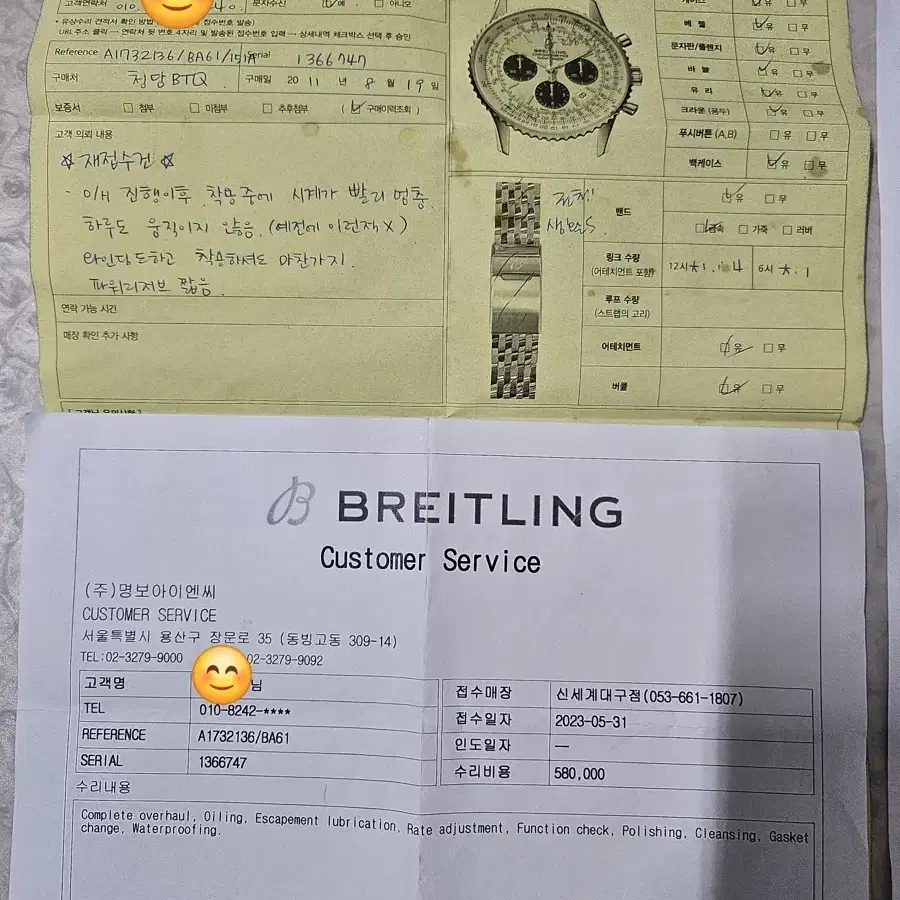 고객연락처 010. 40. 문자수신 예 아니오
URL 주소 클릭 → 연락처 뒷 번호 4자리 및 발송된 접수번호 입력 → 상세내역 체크박스 선택 후 승인
Reference A1732136/BA61/ Serial 1366747
구매처 청담 BTQ 구매일 2011 년 8 월 19 일
보증서 첨부 미첨부 추후첨부 ( 구매이력조회 )
고객 의뢰 내용
☆ 재접수건 ☆
· O/H 진행이후 착용중에 시계가 빨리 멈춤.
하루도 움직이지 않음. (예전에 이런적 X)
와인딩도하고 착용하셔도 마찬가지.
파워리저브 짧음.
연락 가능 시간
매장 확인 추가 사항
BREITLING
유 무
베젤 유 무
문자판/플랜지 유 무
바늘 유 무
유리 유 무
크라운 (용두) 유 무
푸시버튼 (A,B) 유 무
백케이스 유 무
밴드 유 무
금속 가죽 러버
링크 수량
(어테치먼트 포함)
12시 6시
루프 수량
(스트랩의 고리)
어테치먼트 유 무
버클 유 무
B BREITLING
Customer Service
(주)명보아이엔씨
CUSTOMER SERVICE
서울특별시 용산구 장문로 35 (동빙고동 309-14)
TEL:02-3279-9000 02-3279-9092
고객명 님
TEL 010-8242-****
REFERENCE A1732136/BA61
SERIAL 1366747
접수매장 신세계대구점(053-661-1807)
접수일자 2023-05-31
인도일자 —
수리비용 580,000
수리내용
Complete overhaul, Oiling, Escapement lubrication, Rate adjustment, Function check, Polishing, Cleansing, Gasket
change, Waterproofing.